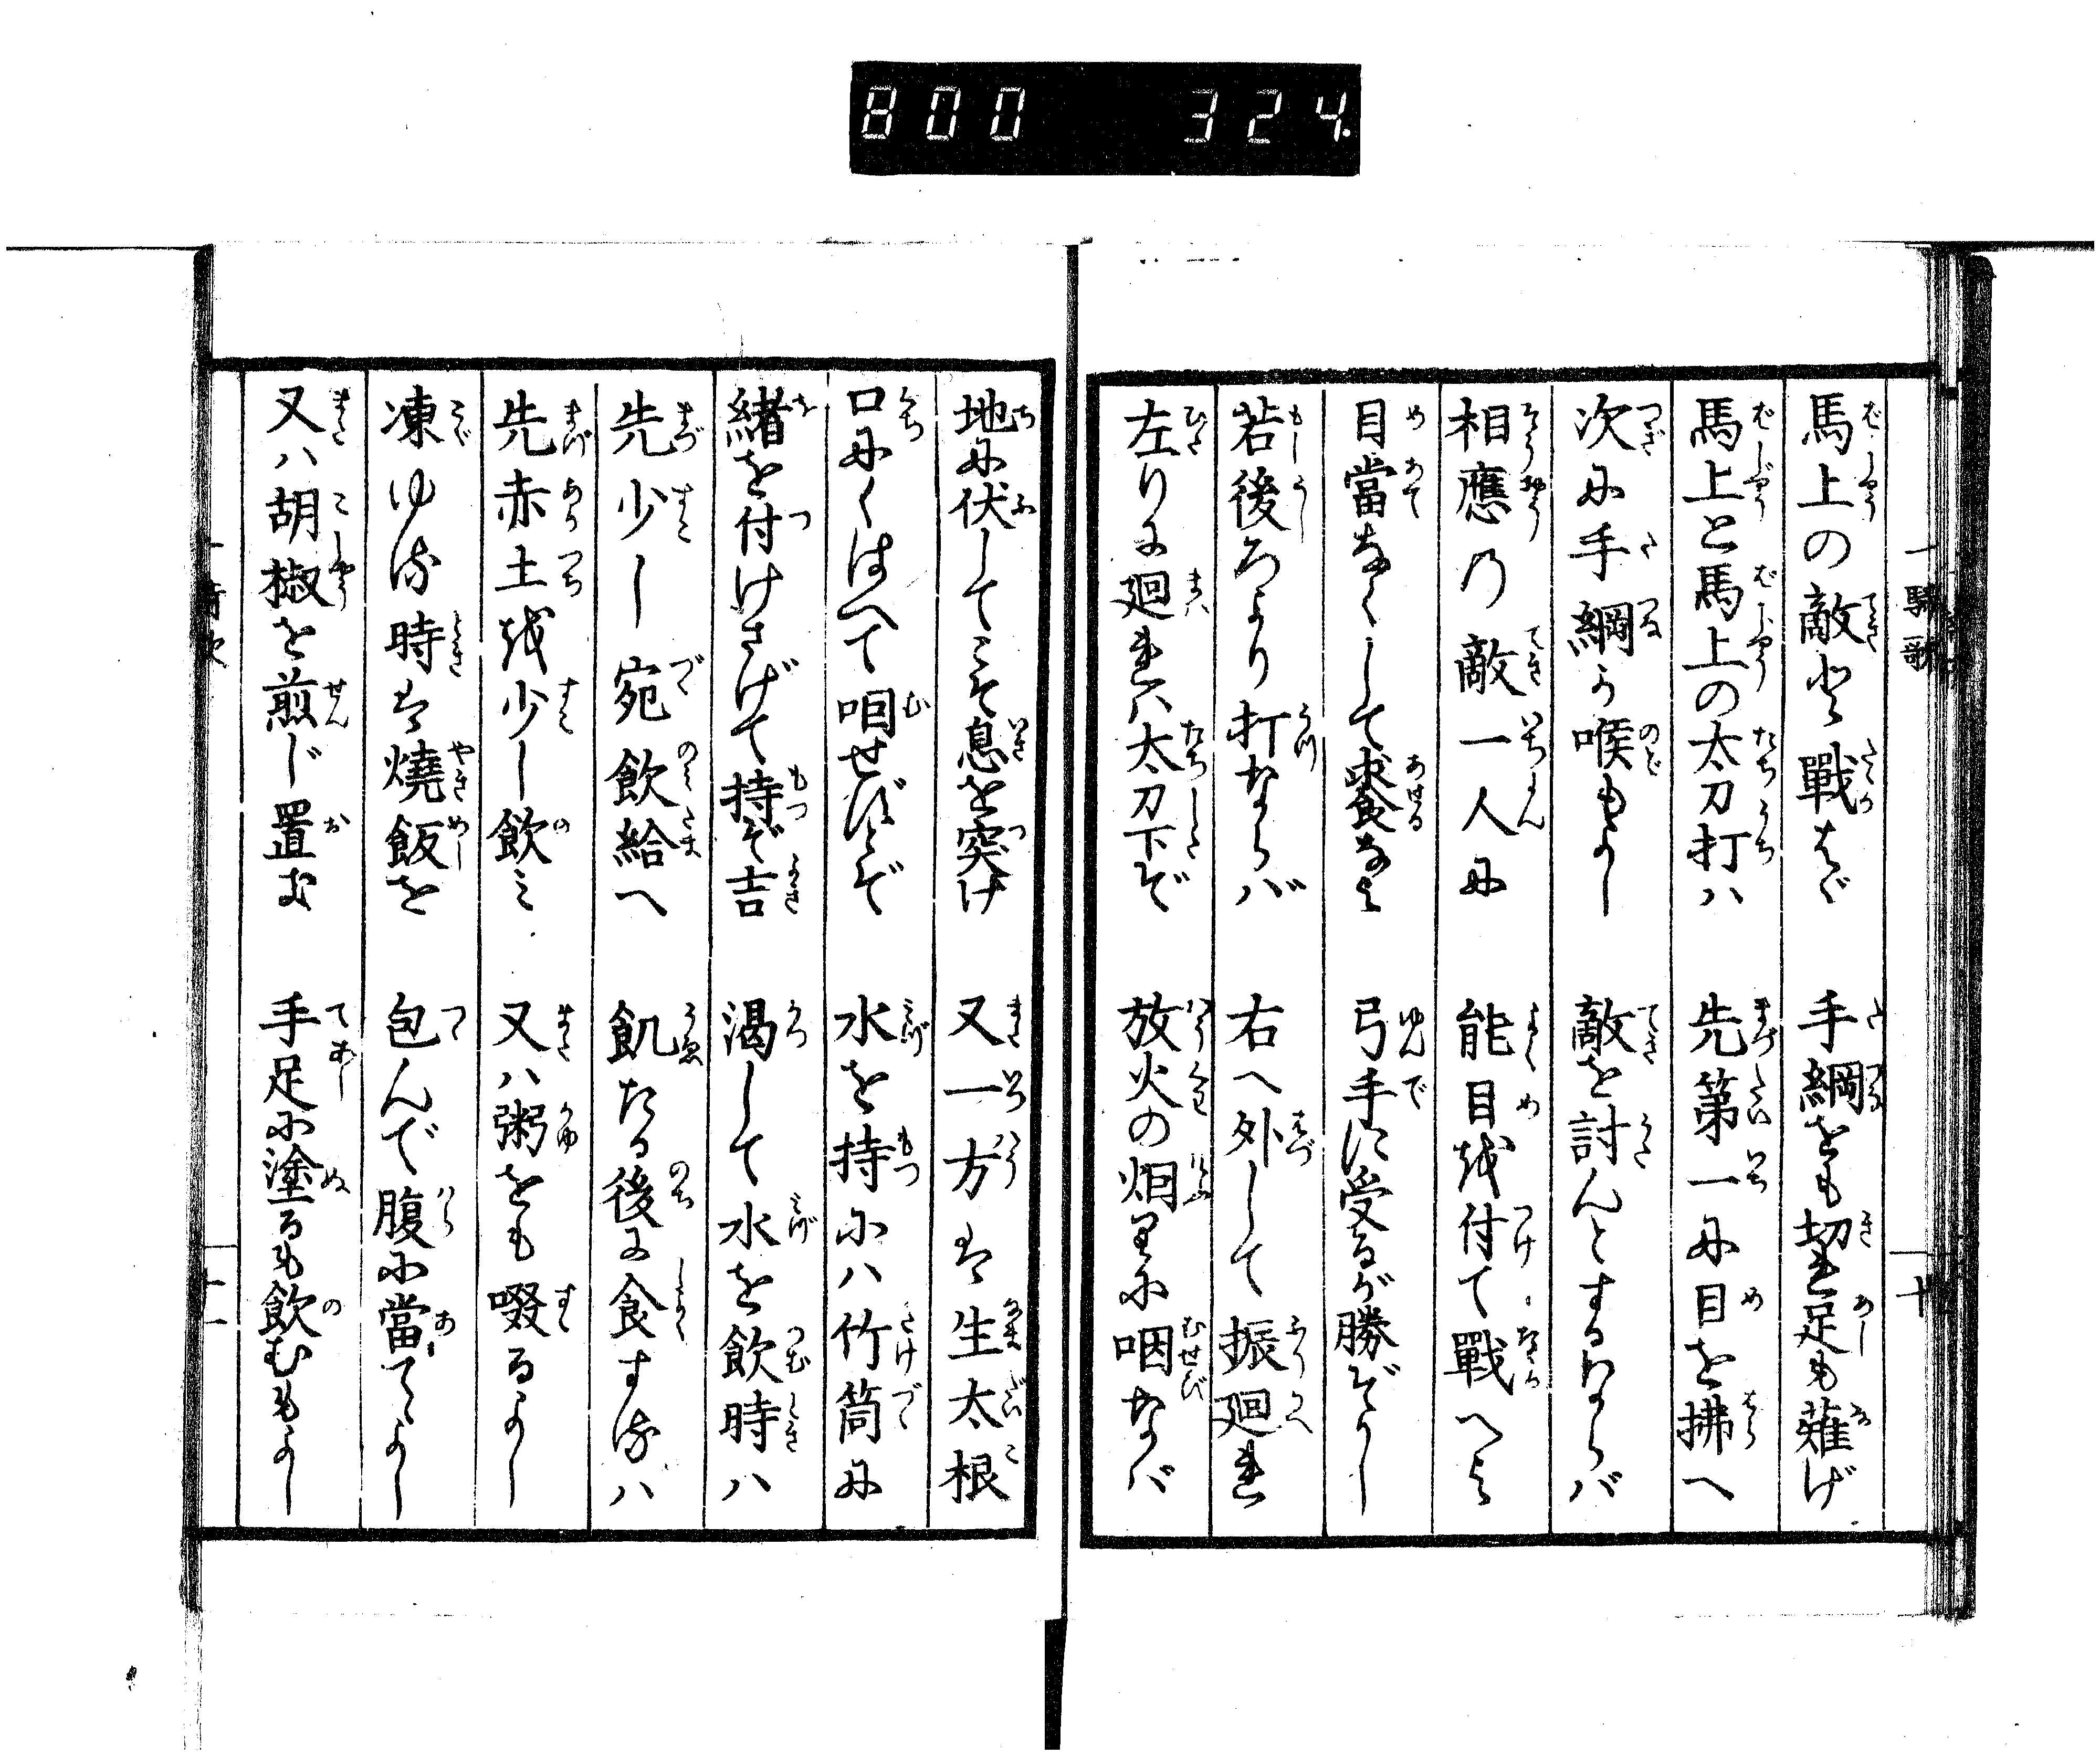 800 324.
一騎歌
馬上の敵と戰はゞ 手綱をも切れ足も薙げ
馬上と馬上の太刀打ハ 先第一に目を拂へ
次に手綱か喉もよし 敵を討んとするならバ
相應の敵一人に 能目を付て戰へよ
目當なくして なよ 弓手に受るが勝ぞかし
若後ろより打ならバ 右へ外して振廻れ
左りに廻れハ太刀下ぞ 放火の烟りに咽なバ
十
地に伏してこそ息を突け 又一方は生太根
口にくはへて咽せばこそ 水を持にハ竹筒に
緒を付けさげて持ぞ吉 渇して水を飲時ハ
先少し宛飲給へ 飢たる後に食するハ
先赤土を少し飲ミ 又ハ粥をも啜るよし
凍ゆる時は燒飯を 包んで腹に當てよし
又ハ胡椒を煎じ置む 手足に塗るも飲むもよし
十一